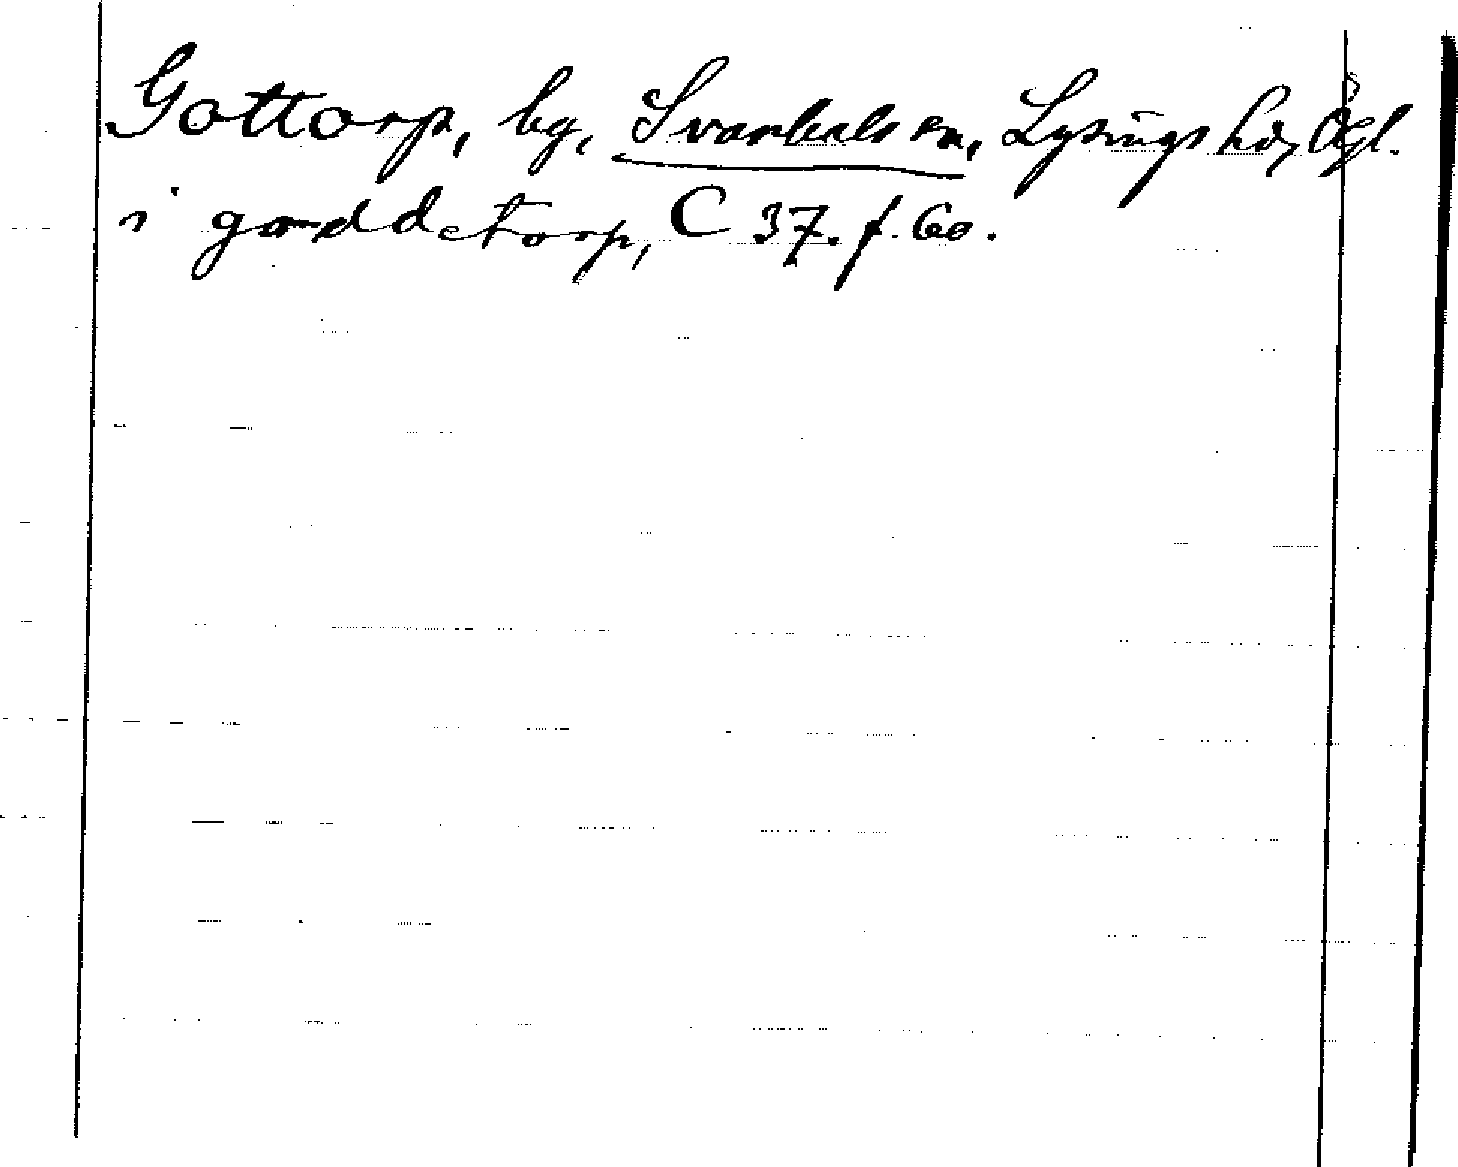 Gottorp, by, Svanhals sn, Lysings hd, Ögl.
i gorddetorp, C 37. f. 60.